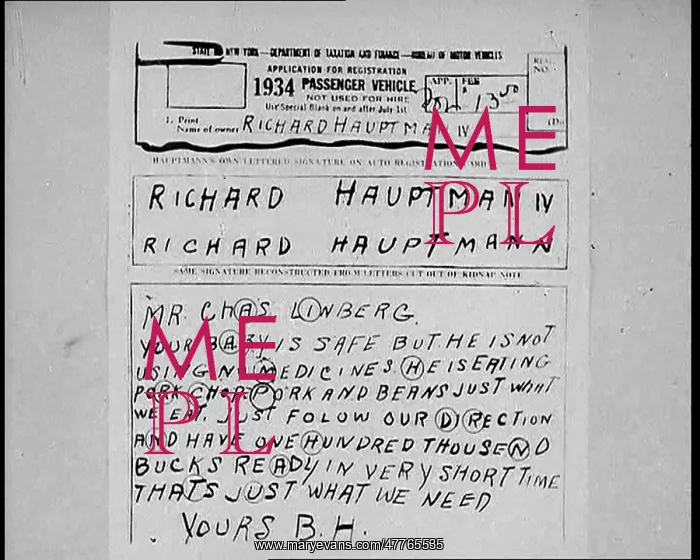 STATE OF NEW YORK — DEPARTMENT OF TAXATION AND FINANCE — BUREAU OF MOTOR VEHICLES
APPLICATION FOR REGISTRATION
1934 PASSENGER VEHICLE
NOT USED FOR HIRE
Use Special Blank on and after July 1st
APP. FEE
$ 13 50
REG. NO.
1. Print
Name of owner RICHARD HAUPTMA IV
HAUPTMANN'S OWN LETTERED SIGNATURE ON AUTO REGISTRATION CARD
RICHARD HAUPTMAN IV
RICHARD HAUPTMANN
SAME SIGNATURE RECONSTRUCTED FROM LETTERS CUT OUT OF KIDNAP NOTE
MR. CHAS LINBERG.
YOUR BABY IS SAFE BUT HE IS NOT
USING NO MEDICINES. HE IS EATING
PORK CHOP PORK AND BEANS JUST WHAT
WE EAT. JUST FOLOW OUR DIRECTION
AND HAVE ONE HUNDRED THOUSEND
BUCKS READY IN VERY SHORT TIME
THATS JUST WHAT WE NEED
YOURS B.H.
ME
PL
ME
PL
www.maryevans.com/47765585